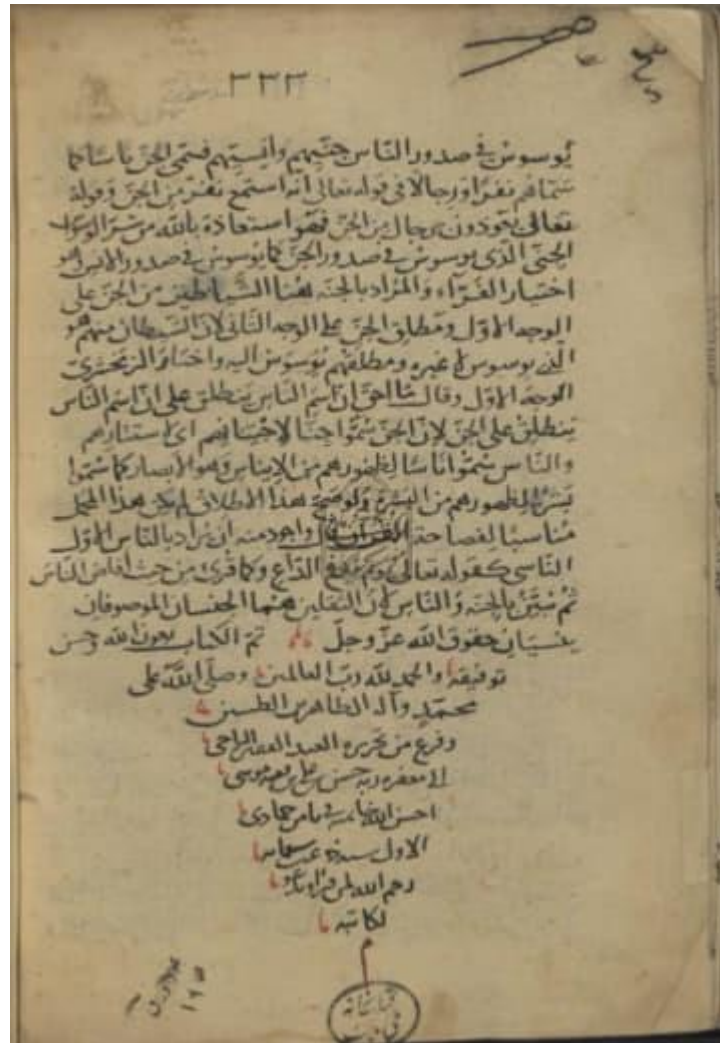 ٣٣٣
يُوسوس في صدور الناس جنّيهم وانسيّهم فسمّى الجن ناسًا كما
سمّاهم نفرًا ورجالا في قوله تعالى انه استمع نفر من الجن وقوله
تعالى يعوذون برجال من الجن فهو استعاذة بالله من شر الوسواس
الجنّي الذي يوسوس في صدور الجن كما يوسوس في صدور الانس وهو
اختيار الفرّاء والمراد بالجنّه ههنا الشياطين من الجن على
الوجه الاوّل ومطلق الجن على الوجه الثاني لان الشيطان منهم هو
الذي يوسوس غيره ومطلقهم يُوسوَس اليه واختار الزمخشري
الوجه الاوّل وقال ما احق ان اسم الناس ينطلق على ان اسم الناس
ينطلق على الجن لان الجن سُمّوا جنّا لاجتنانهم اي لاستتارهم
والناس سُمّوا ناسًا لظهورهم من الايناس وهو الابصار كما سُمّوا
بشرًا لظهورهم من البشرة ولو صحّ هذا الاطلاق لم يكن هذا المحمل
مناسبًا لفصاحة القرآن قال واجود منه ان يراد بالناس الاوّل
الناسي كقوله تعالى يوم يدع الداع وكما قرئ من حيث افاض الناس
ثم يبيّن بالجنه والناس لان الثقلين هما الجنسان الموصوفان
بنسيان حقوق الله عزّ وجلّ تمّ الكتاب بعون الله وحسن
توفيقه والحمد لله ربّ العالمين وصلّى الله على
محمّدٍ وآله الطاهرين الطيبين
وفرغ من تحريره العبد الفقير الراجي
الى مغفرة ربه حسن بن علي بن موسى
احسن الله خاتمته في ثامن جمادى
الاول سنة
رحم الله لمن قرا ودعا
لكاتبه
م
كتابخانه